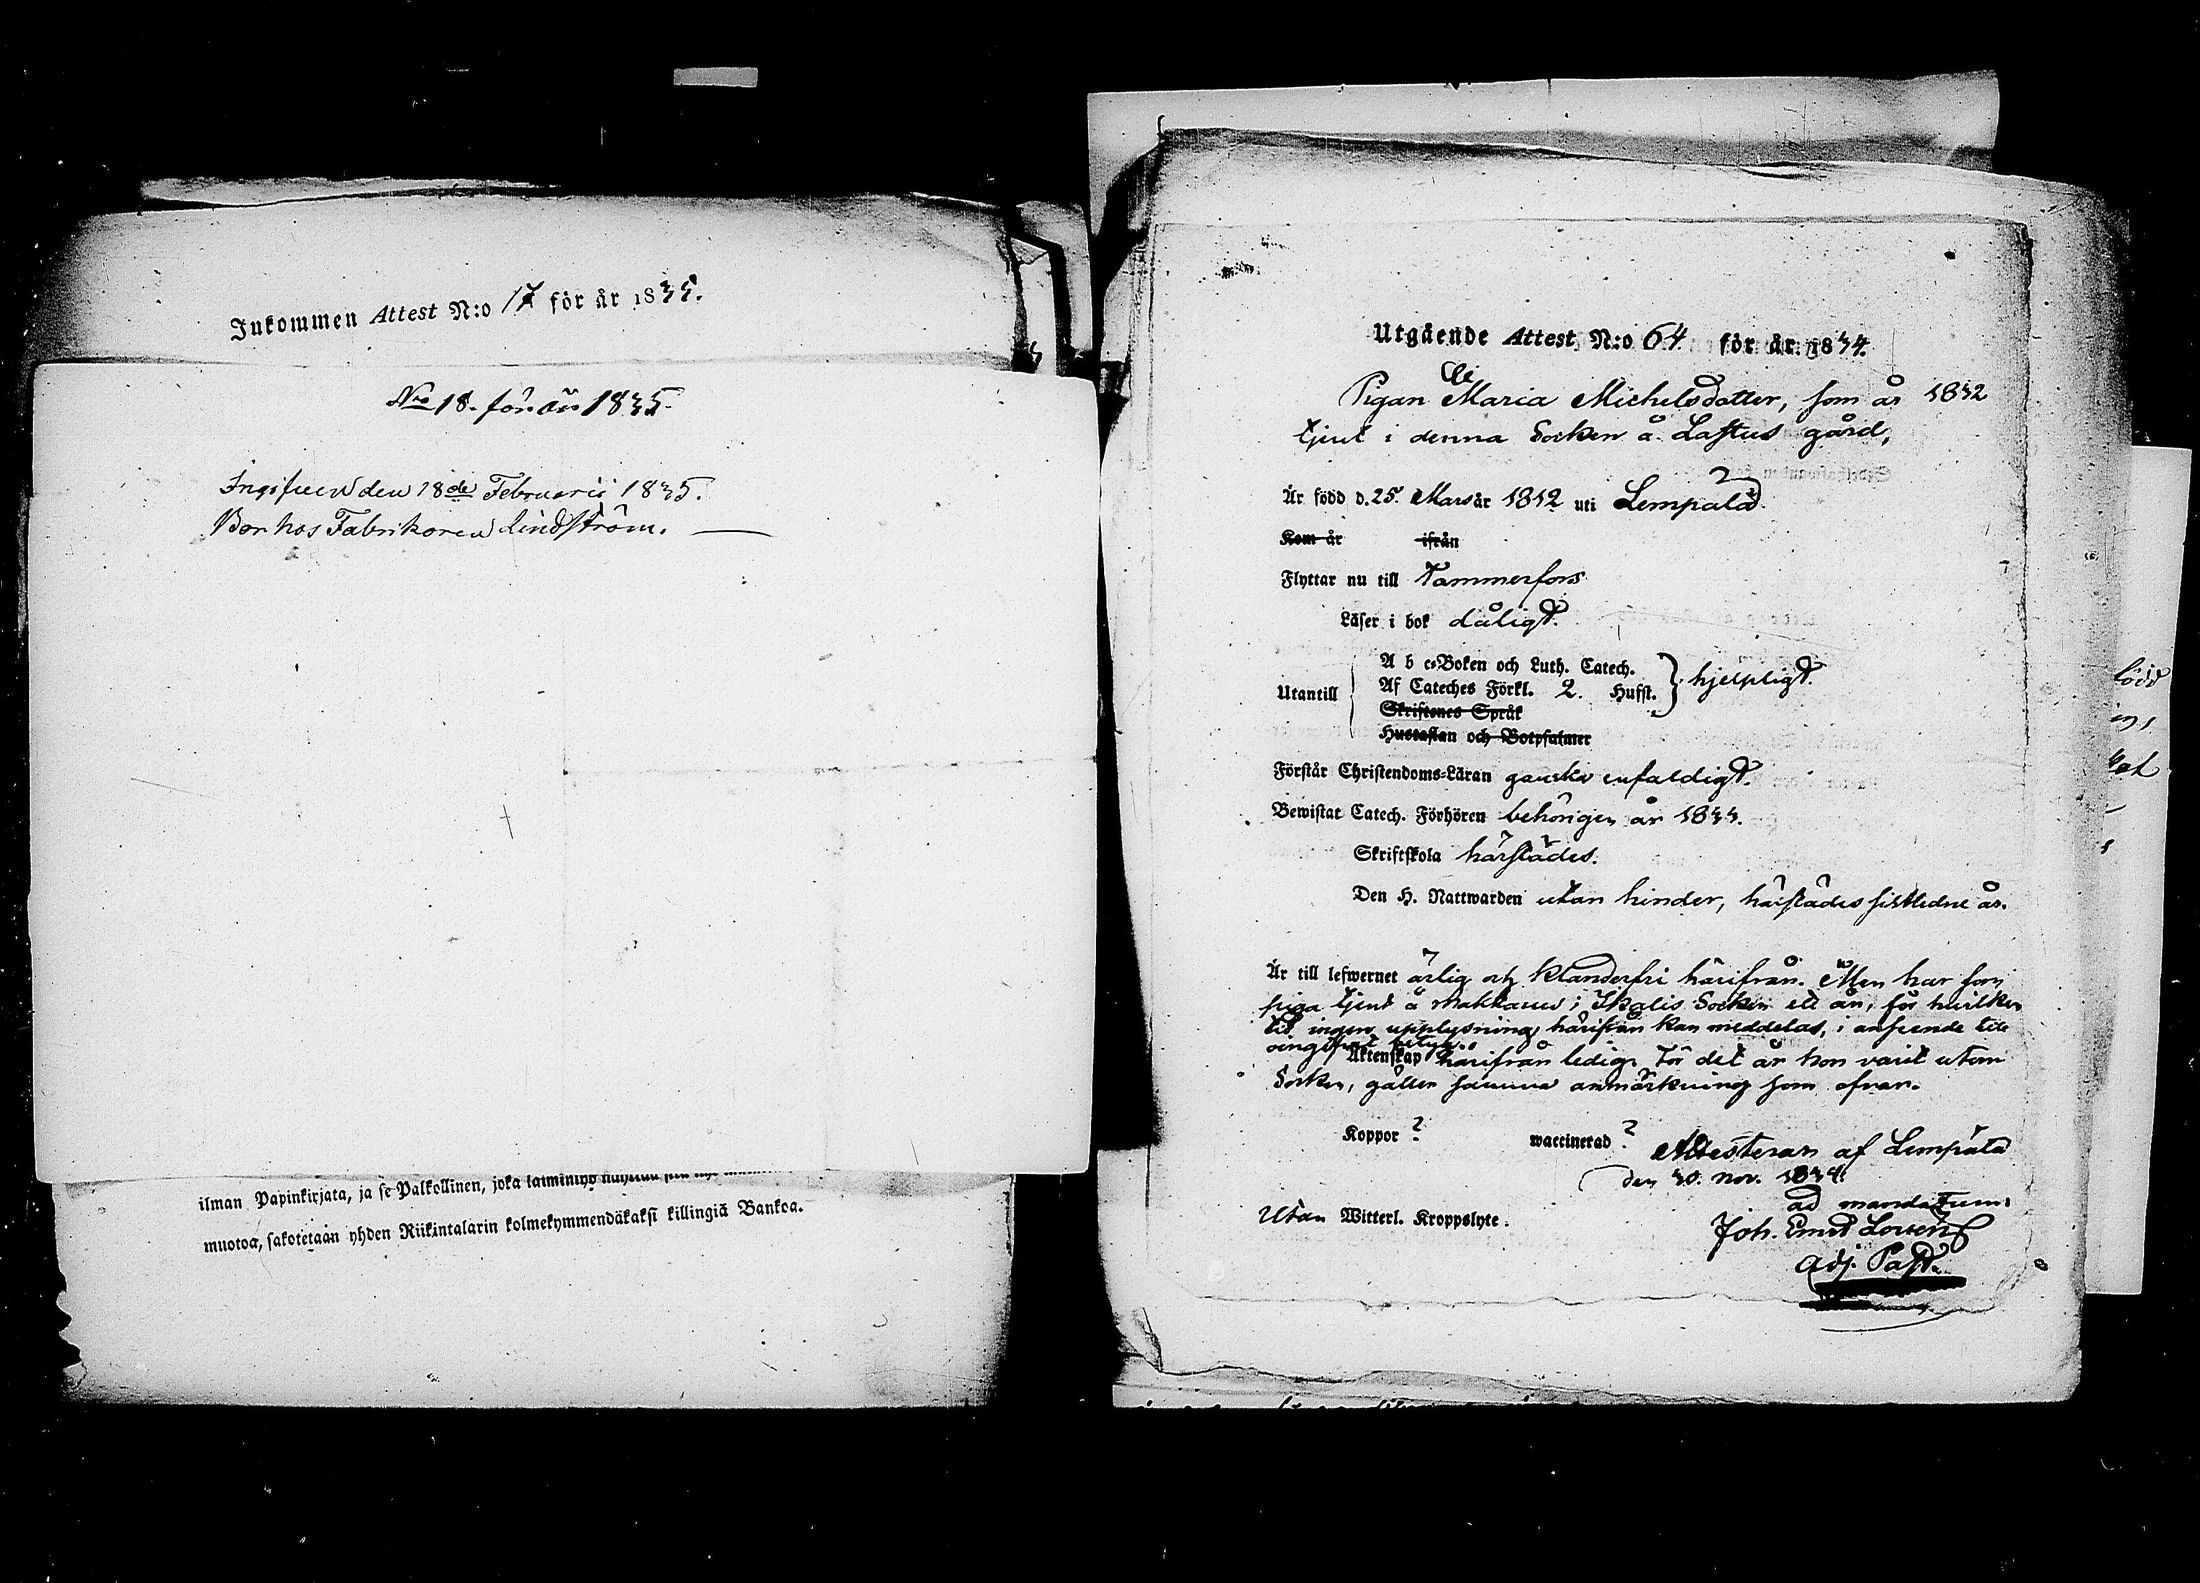 Inkommen Attest N:o 17 för år 1835.
No 18. för år 1835.
den 18de Februarii 1835.
Bor hos Fabrikoren Lindström.
ilman Papinkirjata, ja se Palkollinen, joka
muotoa, sakotetaan yhden Riikintalarin kolmekymmendäkaksi killingiä Bankoa.
Utgående Attest N:o 64 för år 1834.
Pigan Maria Michelsdotter, som år 1832
tjent i denna Socken å Lastus gård,
Är född d. 25. Mars år 1812 uti Lempälä.
Kom år ifrån
Flyttar nu till Tammerfors
Läser i bok dåligt.
Utantill
A b c-Boken och Luth. Catech.
Af Cateches Förkl. 2. Hufst.
hjelpligt.
Skriftenes Språk
Hustaflan och Botpsalmer
Förstår Christendoms-Läran ganska enfaldigt.
Bewistat Catech. Förhören behörigen år 1833.
Skriftskola härstädes.
Den H. Nattwarden utan hinder, härstädes sistledne år.
Är till lefwernet ärlig och klanderfri härifrån. Men har som
piga tjent å i Ikalis Socken ett år, för hvilken
tid ingen upplysning härifrån kan meddelas, i anseende till
Äktenskap härifrån ledig. För det år hon varit utom
Socken, gäller samma anmärkning som ofvan.
Koppor ? waccinerad ?
Attesteras af Lempälä
den 30. Nov. 1834.
ad mandatum:
Utan Witterl. Kroppslyte.
Joh. Ernst
Adj. Past.
född